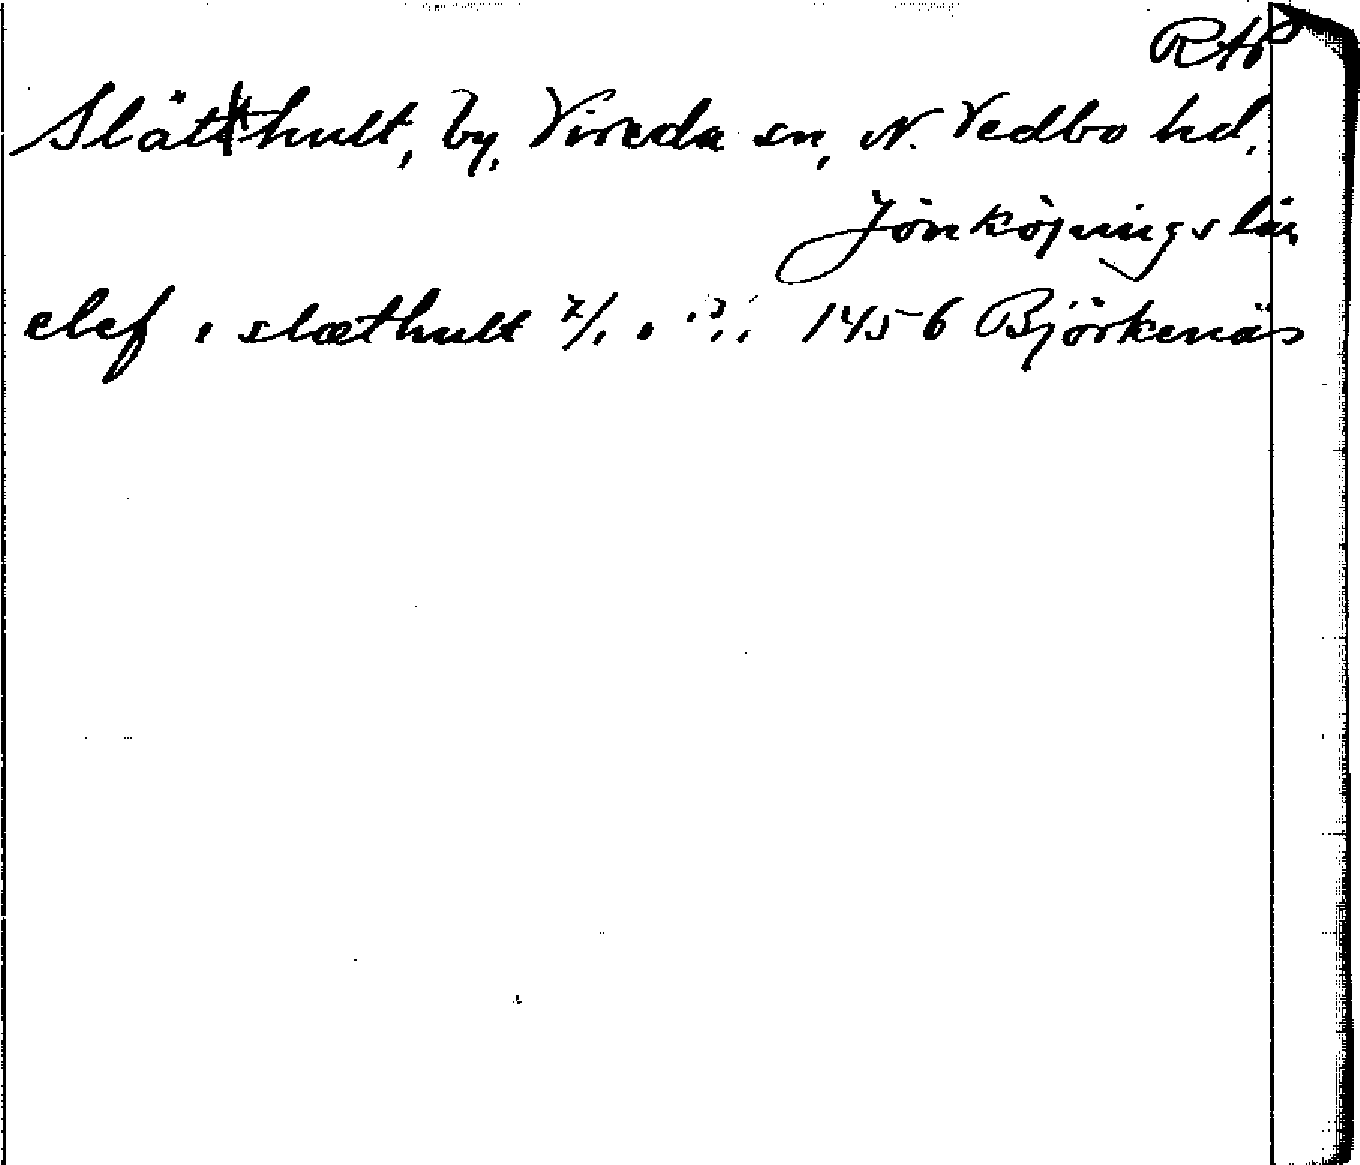 RAp
Slätthult, by, Vireda sn, N. Vedbo hd,
Jönköpings län
elef i slæthult 7/1 1456 Björkenäs